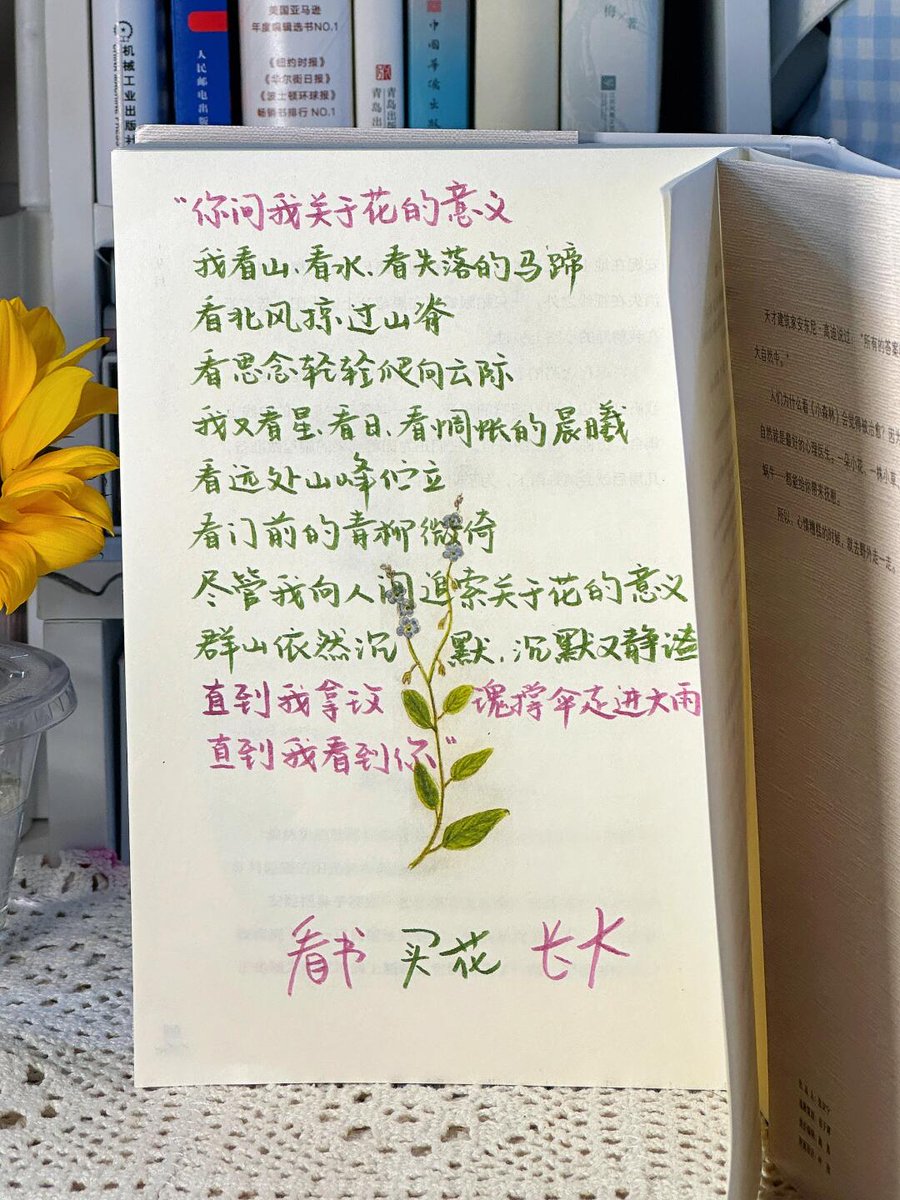 机械工业出版社
人民邮电出版
美国亚马逊
年度编辑选书NO.1
《纽约时报》
《华尔街日报》
《波士顿环球报》
畅销书排行 NO.1
青岛出版
青岛出版
中国华侨出版
梅 著
“你问我关于花的意义
我看山、看水、看失落的马蹄
看北风掠过山脊
看思念轻轻爬向云际
我又看星、看日、看惆怅的晨曦
看远处山峰伫立
看门前的青柳微倚
尽管我向人间追索关于花的意义
群山依然沉默,沉默又静谧
直到我拿玫瑰撑伞走进大雨
直到我看到你”
看书 买花 长大
天才建筑家安东尼·高迪说过:“所有的答案
大自然中。”
人们为什么看《小森林》会觉得被治愈?因为
自然就是最好的心理医生。一朵小花、一株小草
蜗牛一都能给你带来抚慰。
所以,心情糟糕的时候,就去野外走一走。